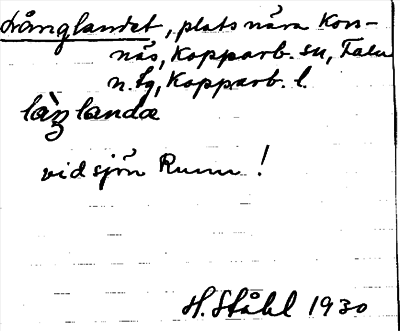 Långlandet, plats nära Kors-
näs, Kopparb. sn, Falu
n. tg, Kopparb. l.
là̀ŋlanda
vid sjön Runn!
H. Ståhl 1930